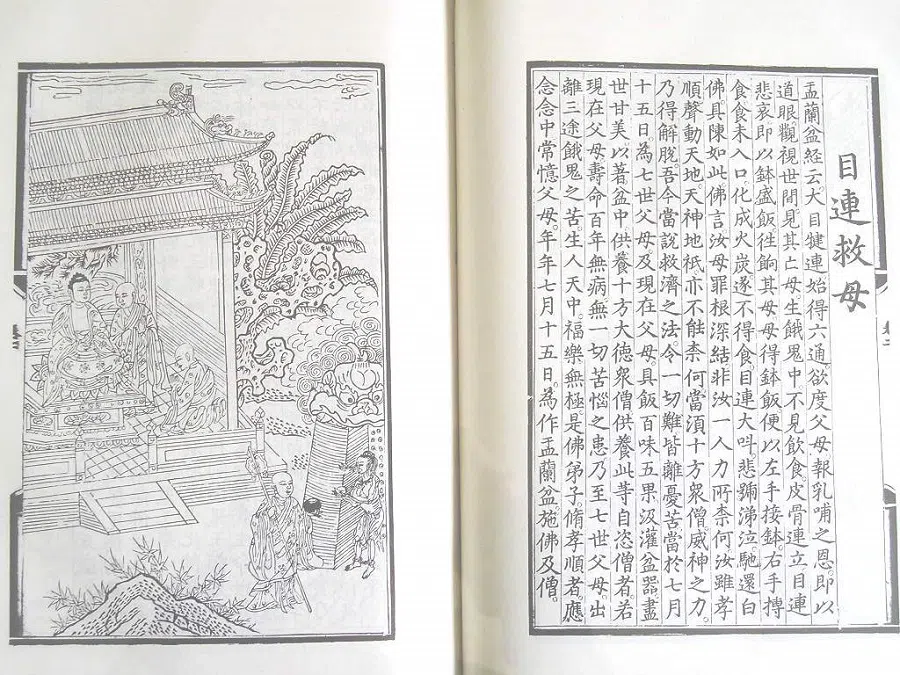 目連救母
盂蘭盆經云。大目犍連始得六通。欲度父母報乳哺之恩。即以
道眼觀視世間。見其亡母。生餓鬼中。不見飲食。皮骨連立。目連
悲哀。即以鉢盛飯。徃餉其母。母得鉢飯。便以左手接鉢。右手摶
食。食未入口。化成火炭。遂不得食。目連大呌。悲號涕泣。馳還白
佛。具陳如此。佛言。汝母罪根深結。非汝一人力所柰何。汝雖孝
順。聲動天地。天神地祇。亦不能柰何。當湏十方衆僧威神之力。
乃得解脫。吾今當說救濟之法。令一切難皆離憂苦。當於七月
十五日。為七世父母。及現在父母。具飯百味五果。汲灌盆器。盡
世甘美。以著盆中。供養十方大德衆僧。供養此等自恣僧者。若
現在父母。壽命百年無病。無一切苦惱之患。乃至七世父母。出
離三途餓鬼之苦。生人天中。福樂無極。是佛弟子脩孝順者。應
念念中常憶父母。年年七月十五日。為作盂蘭盆。施佛及僧。